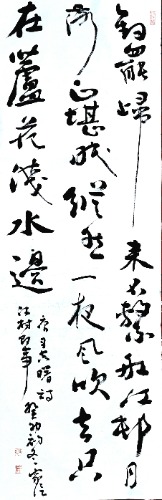 釣罷歸來不繫船江邨月
落正堪眠縱然一夜風吹去只
在蘆花淺水邊
唐司空曙詩
江村即事